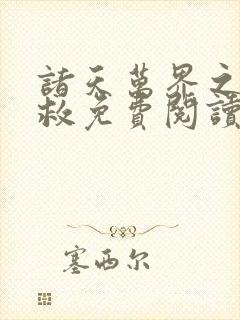 諸天萬界之
救免費閱讀
塞西尔